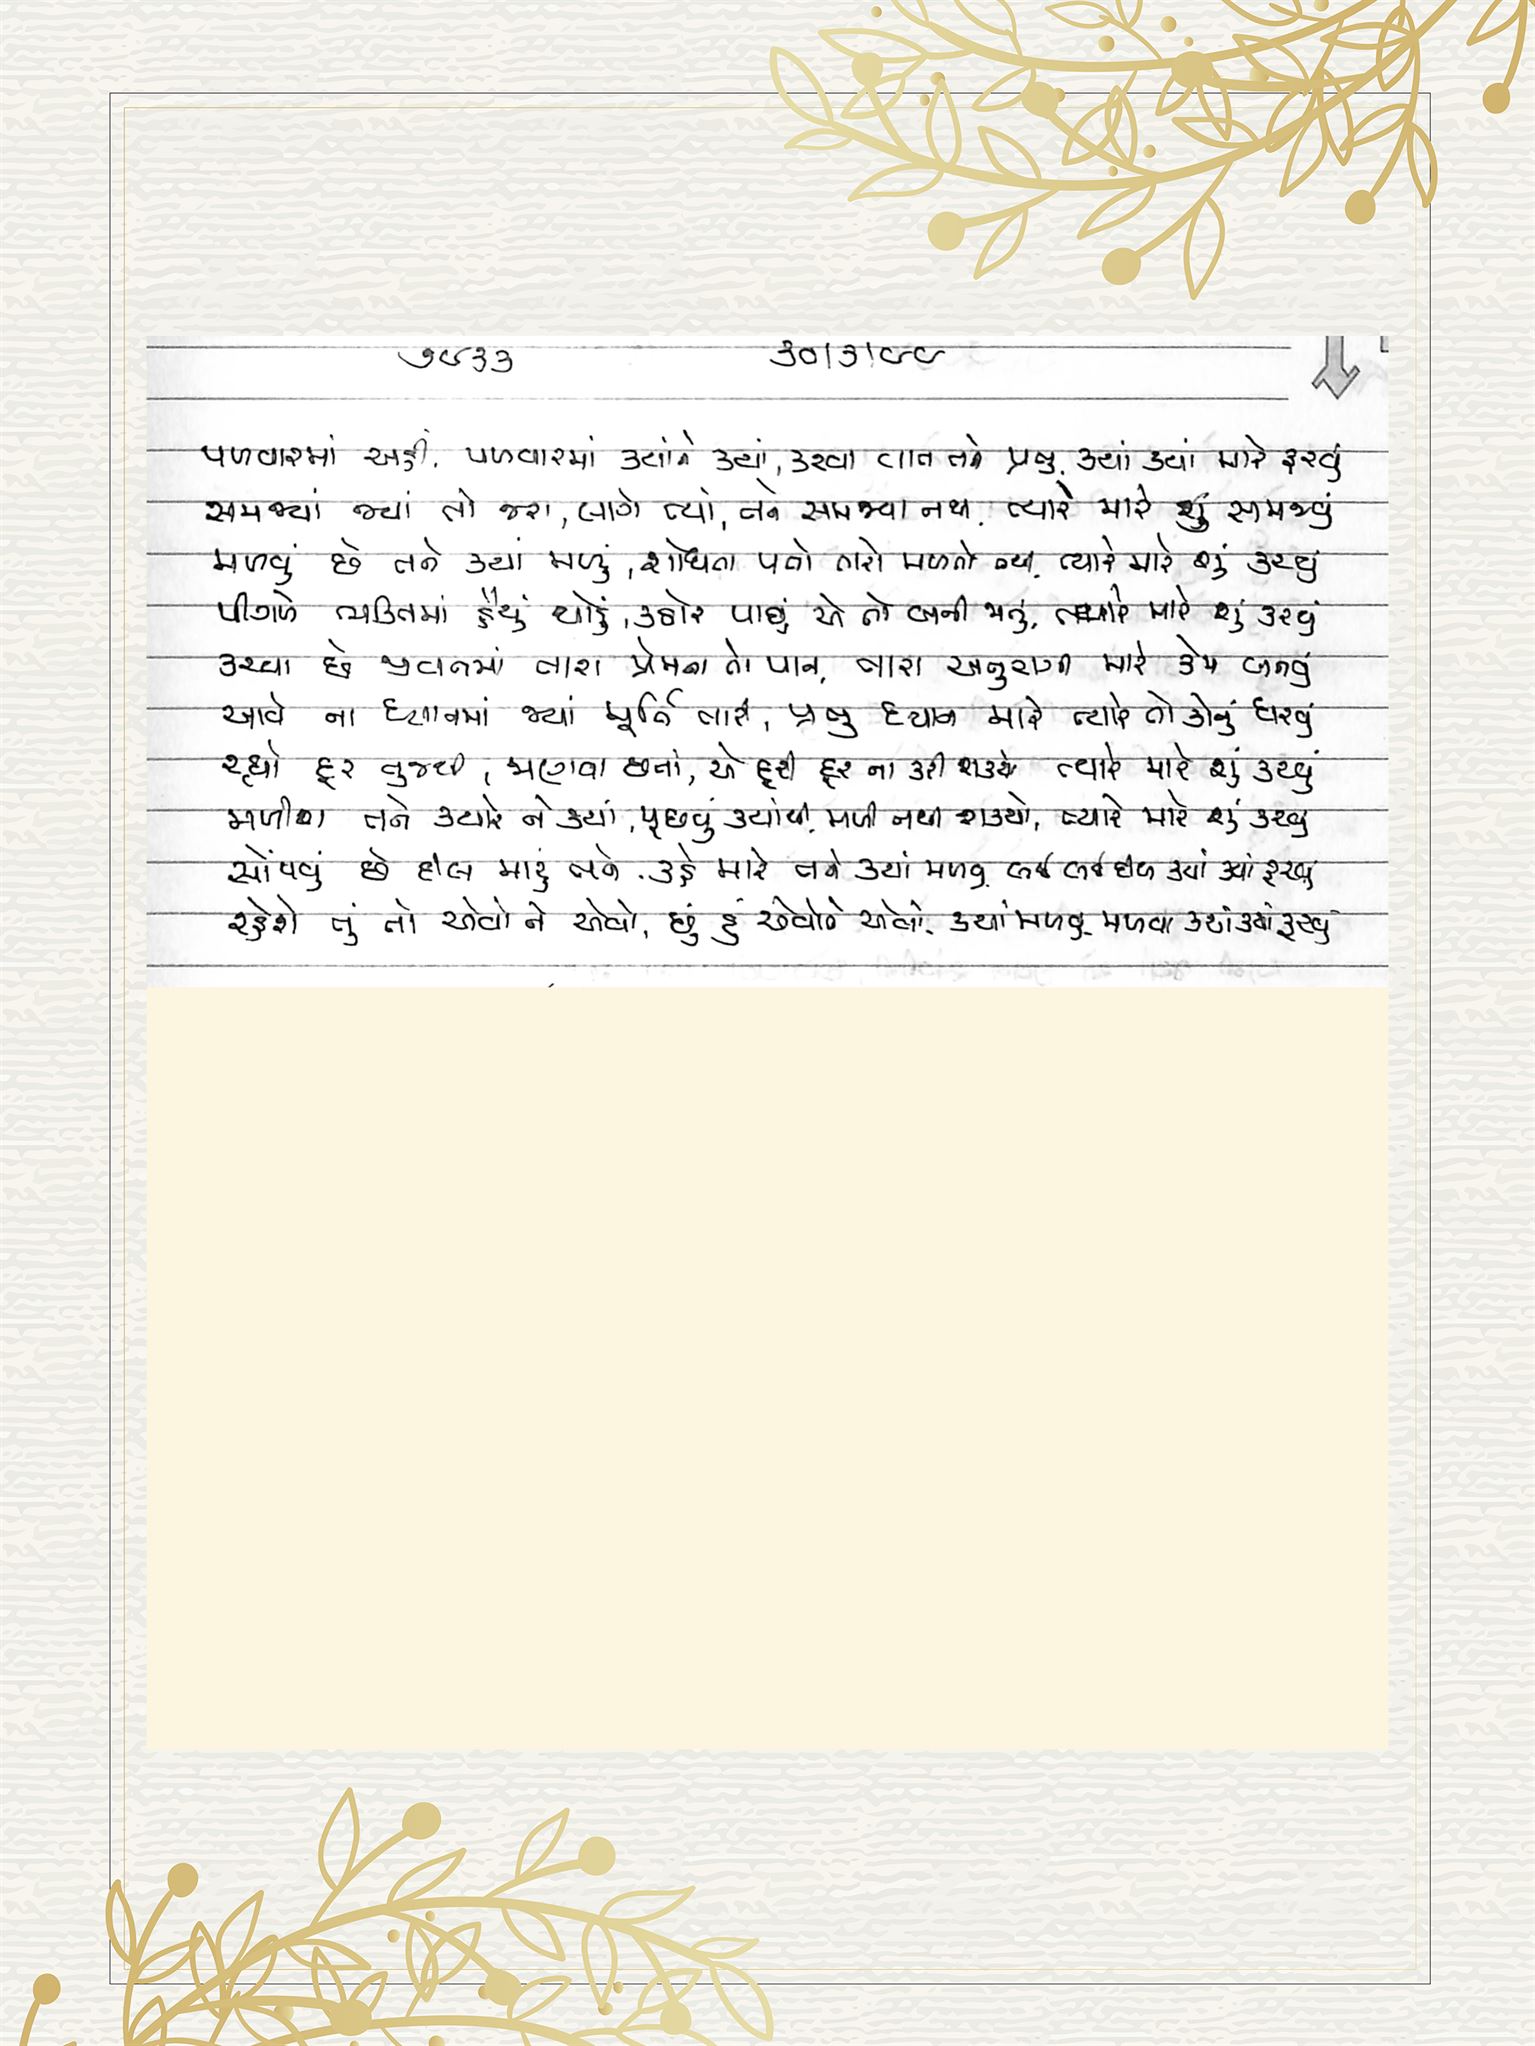 ૭૯૩૩ ૩૦/૩/૯૯
પળવારમાં અહીં, પળવારમાં ક્યાંને ક્યાં, કરવા વાત તને પ્રભુ, ક્યાં ક્યાં મારે ફરવું
સમજ્યાં જ્યાં તો જરા, લાગે ત્યાં, તને સમજ્યા નથી, ત્યારે મારે શું સમજવું
મળવું છે તને ક્યાં મળું, શોધતા પત્તો તારો મળતો નથી, ત્યારે મારે શું કરવું
પીગળે વ્યક્તિમાં હૈયું થોડું, કઠોર પાછું એ તો બની જતું, ત્યારે મારે શું કરવું
કરવા છે જીવનમાં તારા પ્રેમના તો પાન, તારા અનુરાગી મારે કેમ બનવું
આવે ના ધ્યાનમાં જ્યાં મૂર્તિ તારી, પ્રભુ ધ્યાન મારે ત્યારે તો કોનું ધરવું
રહ્યો દૂર તુજથી, જાણવા છતાં, એ દૂરી દૂર ના કરી શક્યો ત્યારે મારે શું કરવું
મળીશ તને ક્યારે ને ક્યાં, પૂછવું ક્યાંથી, મળી નથી શક્યો, ત્યારે મારે શું કરવું
સોંપવું છે દીલ મારું તને, કહે મારે તને ક્યાં મળવું, લઈ લઈ દીલ ક્યાં ક્યાં ફરવું
રહેશે તું તો એવો ને એવો, છું હું એવોને એવો, ક્યાં મળવુ, મળવા ક્યાં ક્યાં ફરવું